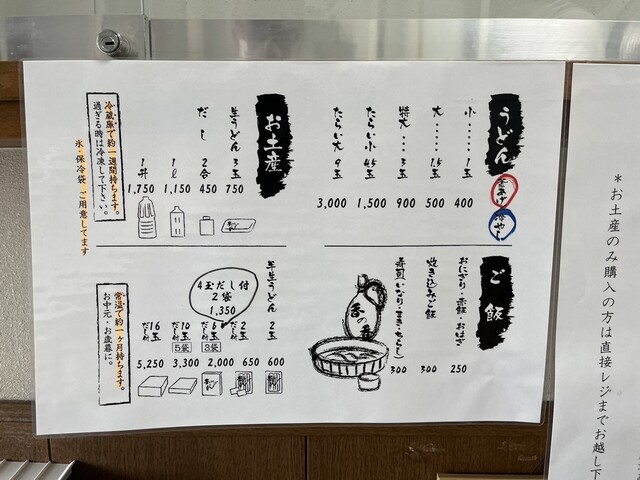 うどん
釜あげ
冷やし
小・・・・1玉 400
大・・・・1.5玉 500
特大・・・3玉 900
たらい小 4.5玉 1,500
たらい大 9玉 3,000
お土産
生うどん 3玉 750
だし 2合 450
1ℓ 1,150
1升 1,750
冷蔵庫で約一週間持ちます。
過ぎる時は冷凍して下さい。
氷・保冷袋 ご用意してます
ご飯
おにぎり・赤飯・おはぎ 250
炊き込みご飯 300
寿司(いなり・まき・ちらし) 300
香の香
半生うどん 2玉 600
だし付 2玉 650
4玉だし付
2袋
1,350
だし付 6玉 3袋 2,000
だし付 10玉 5袋 3,300
だし付 16玉 5,250
常温で約一ヶ月持ちます。
お中元・お歳暮に。
*お土産のみ購入の方は直接レジまでお越し下